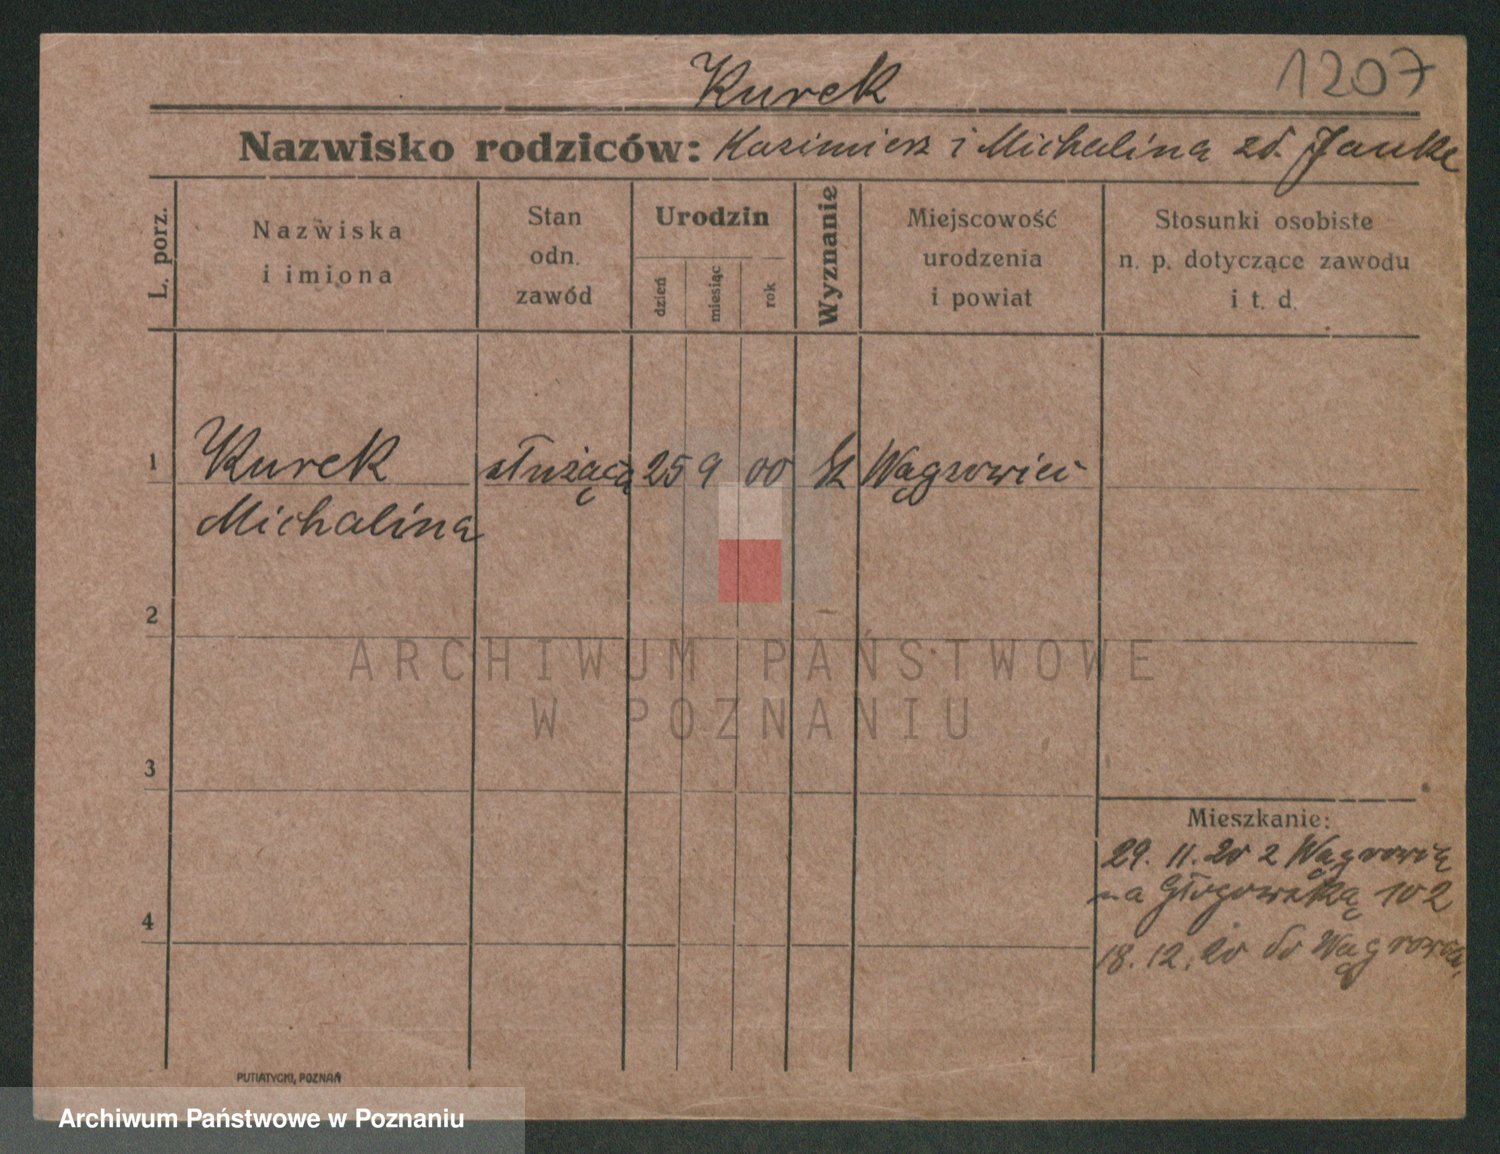 Kurek
1207
Nazwisko rodziców: Kazimierz i Michalina zd. Janke
L. porz.
Nazwiska
i imiona
Stan
odn.
zawód
Urodzin
dzień
miesiąc
rok
Wyznanie
Miejscowość
urodzenia
i powiat
Stosunki osobiste
n. p. dotyczące zawodu
i t. d.
1 Kurek służąca 25 9 00 Wągrowiec
Michalina
2
ARCHIWUM PAŃSTWOWE
W POZNANIU
3
Mieszkanie:
29. 11. 20 z Wągrowca
na Głogowską 102
4
18. 12. 20 do Wągrowca
PUTIATYCKI, POZNAŃ
Archiwum Państwowe w Poznaniu